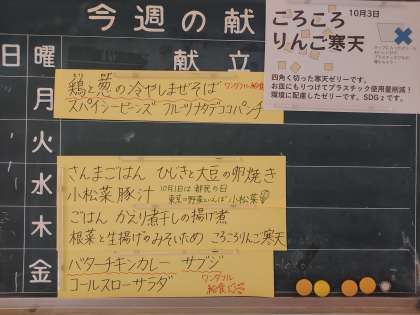 今週の献
日 曜 献 立
月
鶏と葱の冷やしまぜそば ワンダフル給食
スパイシービーンズ フルーツナタデココパンチ
火
水
さんまごはん ひじきと大豆の卵焼き
小松菜豚汁 10月1日は都民の日
東京の野菜といえば小松菜
木
ごはん かえり煮干しの揚げ煮
根菜と生揚げのみそいため ころころりんご寒天
金
バターチキンカレー サブジ
コールスローサラダ ワンダフル
給食
ころころ 10月3日
りんご寒天
四角く切った寒天ゼリーです。
お皿にもりつけてプラスチック使用量削減!
環境に配慮したゼリーです。SDGzです。